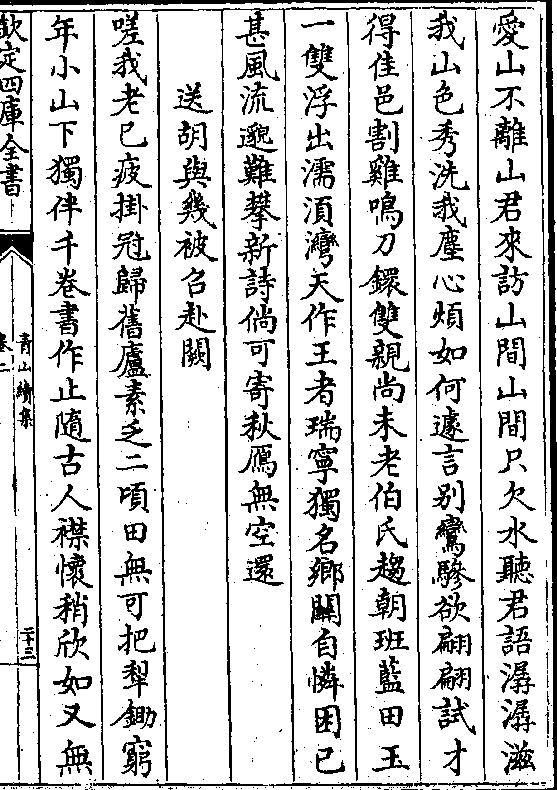 愛山不離山君來訪山間山間只欠水聽君語潺潺滋
我山色秀洗我塵心煩如何遽言别鸞驂欲翩翩試才
得佳邑割雞鳴刀鐶雙親尚未老伯氏趨朝班藍田玉
一雙浮出濡湏灣天作王者瑞寧獨名鄉關自憐困已
甚風流邈難攀新詩倘可寄秋鴈無空還
送胡與幾被召赴闕
嗟我老已疲掛冠歸舊廬素乏二頃田無可把犁鋤窮
年小山下獨伴千卷書作止隨古人襟懷稍欣如又無
欽定四庫全書
青山續集
卷二
二十三